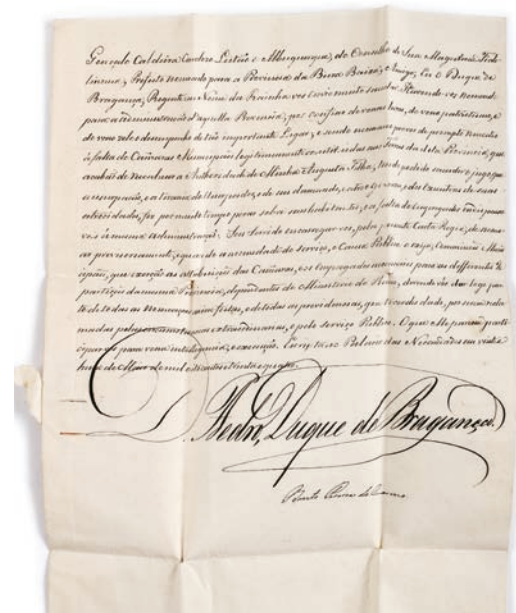 Gonçalo Caldeira Cardoso Leitão e Albuquerque, do Conselho de Sua Magestade Fide-
lissima, Prefeito nomeado para a Provincia da Beira Baixa, Amigo, Eu o Duque de
Bragança, Regente em Nome da Rainha vos envio muito saudar. Havendo-vos nomeado
para a administração d'aquella Provincia, por confiar de vossas luzes, de vosso patriotismo, e
de vosso zelo o desempenho de tão importante Lugar, e sendo necessario prover de prompto remedio
á falta de Camaras Municipaes legitimamente constituidas nas Terras da dita Provincia, que
acabão de reconhecer a Authoridade de Minha Augusta Filha,
a usurpação, e a tyrannia
por muito tempo pesou sobre seus habitantes, e a falta de empregados
administração: Hei por bem encarregar-vos, pela presente Carta Regia, de nome-
ar provisoriamente, quando a necessidade do serviço, e Causa Publica o exija, Commissões Muni-
cipaes, que exerção as attribuições das Camaras, e os Empregados necessarios para as differentes Re-
partições da mesma Provincia, dependentes do Ministerio do Reino, dando-vos
te de todas as nomeações que fizerdes, e de todas as providencias, que
madas pelas circumstancias extraordinarias, e pelo serviço Publico. O que Me pareceu parti-
cipar-vos para vossa intelligencia, e execução. Escripta no Palacio das Necessidades em vinte
hum de Maio de mil oitocentos trinta e quatro.
D. Pedro, Duque de Bragança
Bento Pereira do Carmo